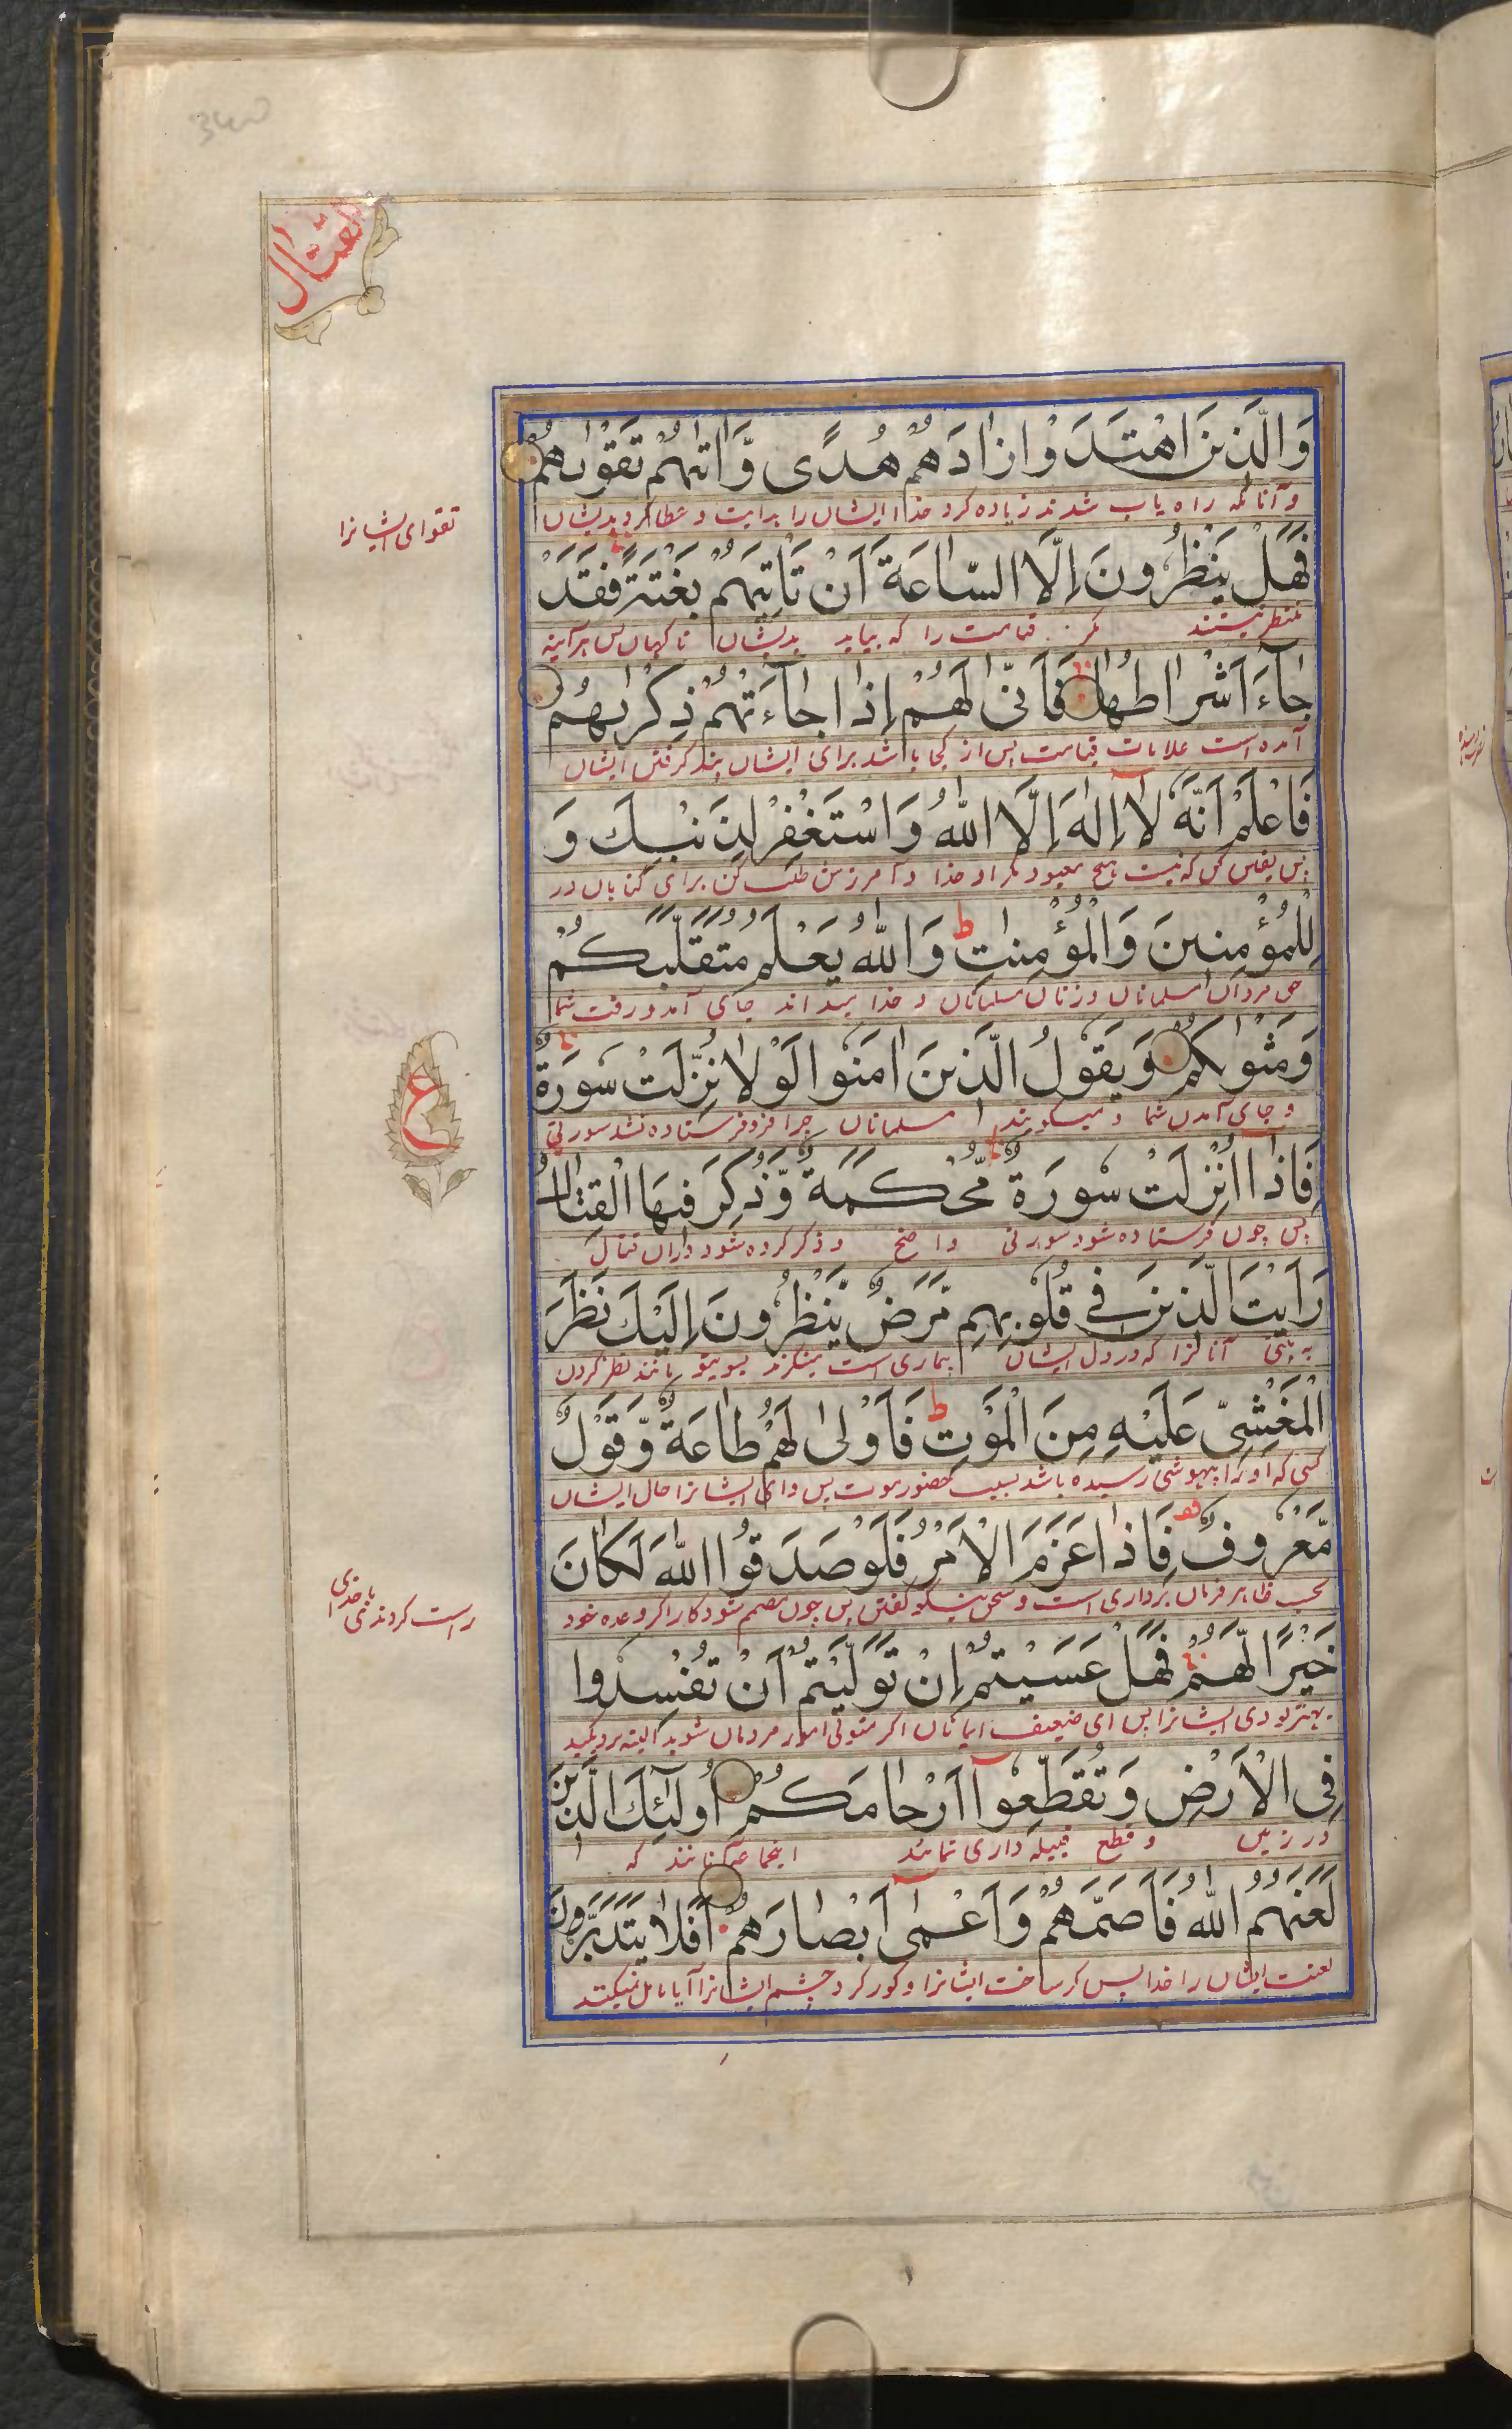 القتال
وَالَّذِينَ اهْتَدَوْا زَادَهُمْ هُدًى وَّاٰتٰىهُمْ تَقْوٰىهُمْ
وآنانکه راه یاب شدند زیاده کرد خدا ایشان را هدایت و عطا کرد بدیشان
تقوای ایشانرا
فَهَلْ يَنْظُرُونَ اِلَّا السَّاعَةَ اَنْ تَاْتِيَهُمْ بَغْتَةً فَقَدْ
منتظر نیستند مگر قیامت را که بیاید بدیشان ناکهان پس هر آینه
جَآءَ اَشْرَاطُهَا فَاَنّٰى لَهُمْ اِذَا جَآءَتْهُمْ ذِكْرٰىهُمْ
آمده است علامات قیامت پس از کجا باشد برای ایشان پند کرفتن ایشان
فَاعْلَمْ اَنَّهٗ لَآ اِلٰهَ اِلَّا اللّٰهُ وَاسْتَغْفِرْ لِذَنْبِكَ وَ
پس یقین کن که نیست هیچ معبود مگر او خدا و آمرزش طلب کن برای کناهان در
لِلْمُؤْمِنِينَ وَالْمُؤْمِنٰتِ ط وَاللّٰهُ يَعْلَمُ مُتَقَلَّبَكُمْ
حق مردان مسلمانان و زنان مسلمانان و خدا میداند جای آمد و رفت شما
وَمَثْوٰىكُمْ وَيَقُولُ الَّذِينَ اٰمَنُوا لَوْلَا نُزِّلَتْ سُورَةٌ
و جای آمدن شما و میکویند مسلمانان چرا فرو فرستاده نشد سورتی
ع
فَاِذَآ اُنْزِلَتْ سُورَةٌ مُّحْكَمَةٌ وَّذُكِرَ فِيهَا الْقِتَالُ
پس چون فرستاده شود سورتی واضح و ذکر کرده شود دران قتال
رَاَيْتَ الَّذِينَ فِي قُلُوبِهِمْ مَّرَضٌ يَّنْظُرُونَ اِلَيْكَ نَظَرَ
به بینی آنانرا که در دل ایشان بیماری است مینکرند بسویتو مانند نظر کردن
الْمَغْشِيِّ عَلَيْهِ مِنَ الْمَوْتِ ط فَاَوْلٰى لَهُمْ طَاعَةٌ وَّقَوْلٌ
کسی که او را بیهوشی رسیده باشد بسبب حضور موت پس وای ایشانرا حال ایشان
مَّعْرُوفٌ فَاِذَا عَزَمَ الْاَمْرُ فَلَوْ صَدَقُوا اللّٰهَ لَكَانَ
بحسب ظاهر فرمان برداری است و سخن نیکو کفتن پس چون مصمم شود کار اکر وعده خود
راست کردندی باخدای
خَيْرًا لَّهُمْ فَهَلْ عَسَيْتُمْ اِنْ تَوَلَّيْتُمْ اَنْ تُفْسِدُوا
بهتر بودی ایشانرا پس ای ضعیف ایمانان اکر متولی امور مردمان شوید البته
فِي الْاَرْضِ وَتُقَطِّعُوٓا اَرْحَامَكُمْ اُولٰٓئِكَ الَّذِينَ
در زمین و قطع قبیله داری نمائید اینجماعه آنانند که
لَعَنَهُمُ اللّٰهُ فَاَصَمَّهُمْ وَاَعْمٰٓى اَبْصَارَهُمْ اَفَلَا يَتَدَبَّرُونَ
لعنت ایشان را خدا پس کر ساخت ایشانرا و کور کرد چشم ایشانرا آیا تامل نمیکنند